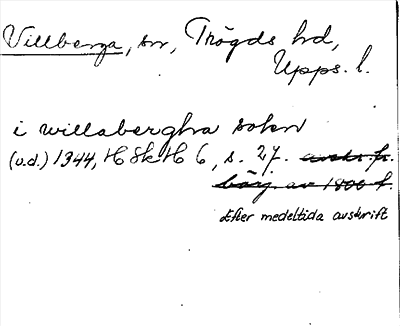 Villberga, sn, Trögds hd,
Upps. l.
i willabergha sokn
(u.d.) 1344, HSkH 6, s. 27. avskr. fr.
börj. av 1800 t.
Efter medeltida avskrift